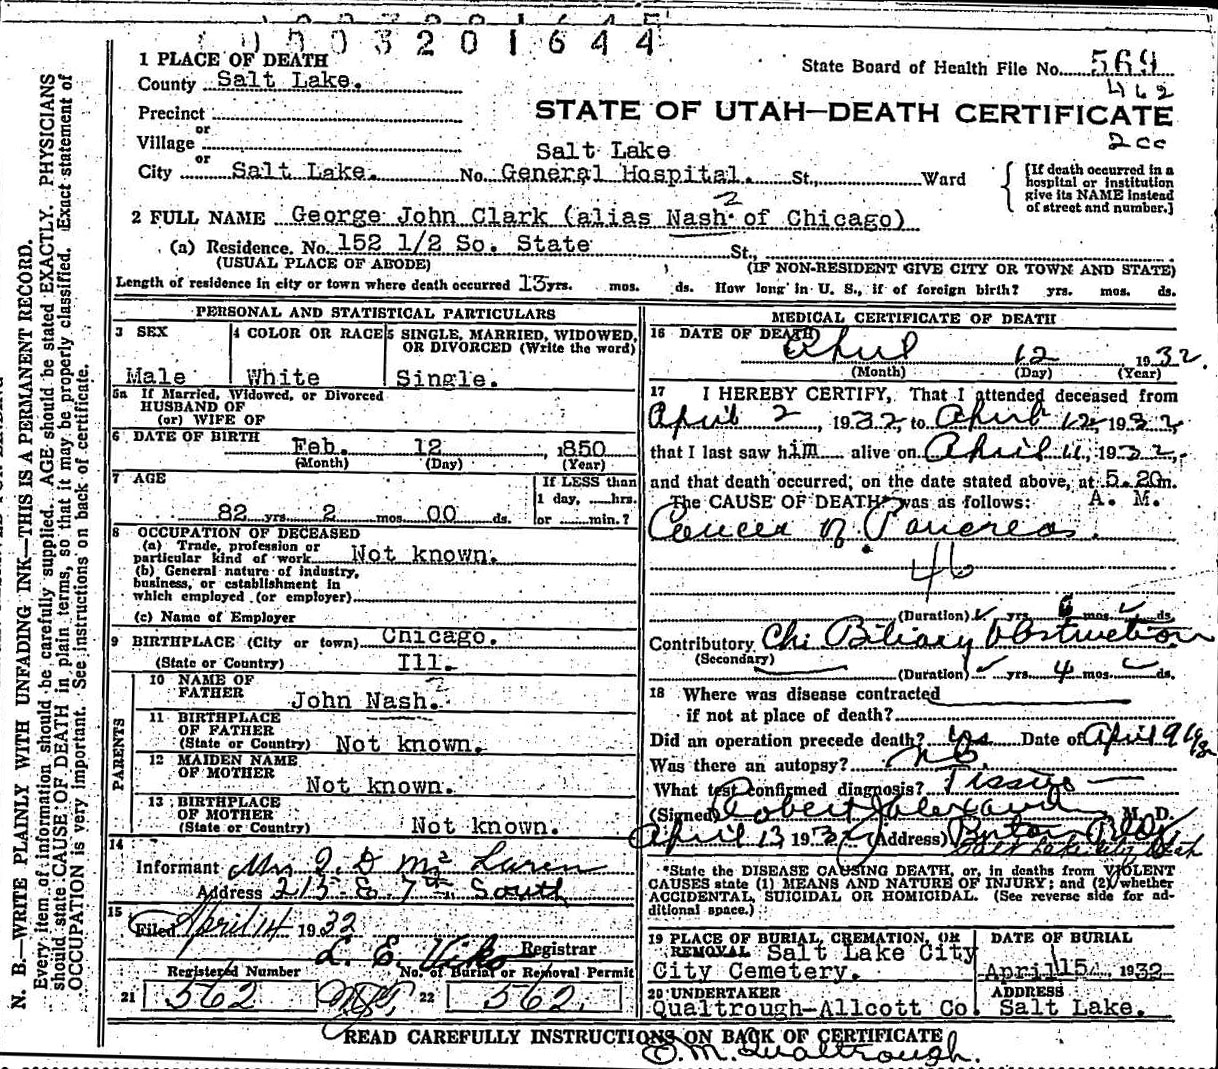 0003201644
1 PLACE OF DEATH
State Board of Health File No. 569
County Salt Lake.
462
Precinct
STATE OF UTAH—DEATH CERTIFICATE
or
Village
2 cc
or
Salt Lake
City Salt Lake. No. General Hospital. St., Ward
[If death occurred in a hospital or institution give its NAME instead of street and number.]
2 FULL NAME George John Clark (alias Nash of Chicago)
(a) Residence. No. 152 1/2 So. State St.,
(USUAL PLACE OF ABODE) (IF NON-RESIDENT GIVE CITY OR TOWN AND STATE)
Length of residence in city or town where death occurred 13 yrs. mos. ds. How long in U. S., if of foreign birth? yrs. mos. ds.
PERSONAL AND STATISTICAL PARTICULARS
3 SEX
Male
4 COLOR OR RACE
White
5 SINGLE, MARRIED, WIDOWED, OR DIVORCED (Write the word)
Single.
5a If Married, Widowed, or Divorced
HUSBAND OF
(or) WIFE OF
6 DATE OF BIRTH
Feb. 12, 1850
(Month) (Day) (Year)
7 AGE
82 yrs. 2 mos. 00 ds.
If LESS than
1 day, hrs.
or min.?
8 OCCUPATION OF DECEASED
(a) Trade, profession or
particular kind of work Not known.
(b) General nature of industry,
business, or establishment in
which employed (or employer)
(c) Name of Employer
9 BIRTHPLACE (City or town) Chicago.
(State or Country) Ill.
PARENTS
10 NAME OF
FATHER
John Nash.
11 BIRTHPLACE
OF FATHER
(State or Country) Not known.
12 MAIDEN NAME
OF MOTHER
Not known.
13 BIRTHPLACE
OF MOTHER
(State or Country) Not known.
14
Informant Mrs. D McLaren
Address 213 E. 7th South
15
Filed April 14 1932
L. E. Viko Registrar
Registered Number No. of Burial or Removal Permit
21 562 22 562
MEDICAL CERTIFICATE OF DEATH
16 DATE OF DEATH
April 12 1932
(Month) (Day) (Year)
17 I HEREBY CERTIFY, That I attended deceased from
April 2, 1932, to April 12, 1932,
that I last saw him alive on April 11, 1932,
and that death occurred, on the date stated above, at 5.20 m.
The CAUSE OF DEATH* was as follows: A. M.
Cancer of Pancreas.
46
(Duration) yrs. 6 mos. ds.
Contributory Chr Biliary Obstruction
(Secondary)
(Duration) yrs. 4 mos. ds.
18 Where was disease contracted
if not at place of death?
Did an operation precede death? Yes Date of April 9 1932
Was there an autopsy? No
What test confirmed diagnosis? Tissue
(Signed) Robert J Alexander M. D.
April 13 1932 (Address) Boston Bldg
Salt Lake City Utah
*State the DISEASE CAUSING DEATH, or, in deaths from VIOLENT
CAUSES state (1) MEANS AND NATURE OF INJURY; and (2) whether
ACCIDENTAL, SUICIDAL OR HOMICIDAL. (See reverse side for ad-
ditional space.)
19 PLACE OF BURIAL, CREMATION, OR
REMOVAL Salt Lake City
City Cemetery.
DATE OF BURIAL
April 15, 1932
20 UNDERTAKER
Qualtrough-Allcott Co.
ADDRESS
Salt Lake.
READ CAREFULLY INSTRUCTIONS ON BACK OF CERTIFICATE
O. M. Qualtrough.
N. B.—WRITE PLAINLY WITH UNFADING INK—THIS IS A PERMANENT RECORD.
Every item of information should be carefully supplied. AGE should be stated EXACTLY. PHYSICIANS
should state CAUSE OF DEATH in plain terms, so that it may be properly classified. Exact statement of
OCCUPATION is very important. See instructions on back of certificate.